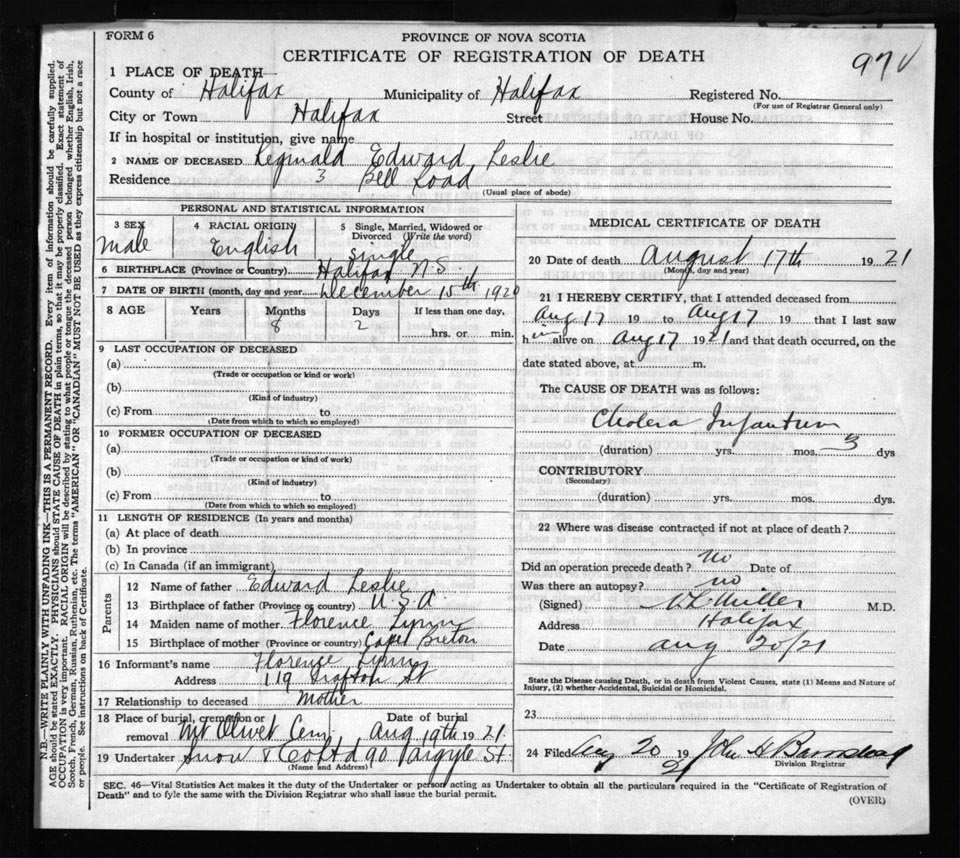 FORM 6
PROVINCE OF NOVA SCOTIA
CERTIFICATE OF REGISTRATION OF DEATH
97
1 PLACE OF DEATH
County of Halifax Municipality of Halifax Registered No.
(For use of Registrar General only)
City or Town Halifax Street House No.
If in hospital or institution, give name
2 NAME OF DECEASED Reginald Edward Leslie
Residence 3 Bell Road
(Usual place of abode)
PERSONAL AND STATISTICAL INFORMATION
3 SEX Male
4 RACIAL ORIGIN English
5 Single, Married, Widowed or Divorced (Write the word) Single
6 BIRTHPLACE (Province or Country) Halifax N.S.
7 DATE OF BIRTH (month, day and year December 15th 1920
8 AGE Years Months Days If less than one day,
8 2 hrs. or min.
9 LAST OCCUPATION OF DECEASED
(a)
(Trade or occupation or kind or work)
(b)
(Kind of industry)
(c) From to
(Date from which to which so employed)
10 FORMER OCCUPATION OF DECEASED
(a)
(Trade or occupation or kind of work)
(b)
(Kind of industry)
(c) From to
(Date from which to which so employed)
11 LENGTH OF RESIDENCE (In years and months)
(a) At place of death
(b) In province
(c) In Canada (if an immigrant)
Parents
12 Name of father Edward Leslie
13 Birthplace of father (Province or country) U.S.A
14 Maiden name of mother Florence Lynn
15 Birthplace of mother (Province or country) Cape Breton
16 Informant's name Florence
Address 119 Grafton St
17 Relationship to deceased Mother
18 Place of burial, cremation or removal Mt Olivet Cem Date of burial Aug 19th 1921
19 Undertaker Snow & Co Ltd 90 Argyle St
(Name and Address)
MEDICAL CERTIFICATE OF DEATH
20 Date of death August 17th 1921
(Month, day and year)
21 I HEREBY CERTIFY, that I attended deceased from
Aug 17 19 to Aug 17 19 that I last saw
h im alive on Aug 17 1921 and that death occurred, on the
date stated above, at m.
The CAUSE OF DEATH was as follows:
Cholera Infantum
(duration) yrs. mos. 3 dys
CONTRIBUTORY
(Secondary)
(duration) yrs. mos. dys.
22 Where was disease contracted if not at place of death?
Did an operation precede death? no Date of
Was there an autopsy? no
(Signed) Miller M.D.
Address Halifax
Date Aug 20/21
State the Disease causing Death, or in death from Violent Causes, state (1) Means and Nature of
Injury, (2) whether Accidental, Suicidal or Homicidal.
23
24 Filed Aug 20 1921 John H Barnstead
Division Registrar
SEC. 46—Vital Statistics Act makes it the duty of the Undertaker or person acting as Undertaker to obtain all the particulars required in the "Certificate of Registration of
Death" and to fyle the same with the Division Registrar who shall issue the burial permit.
(OVER)
N.B.—WRITE PLAINLY WITH UNFADING INK—THIS IS A PERMANENT RECORD. Every item of information should be carefully supplied.
AGE should be stated EXACTLY. PHYSICIANS should STATE CAUSE OF DEATH in plain terms, so that it may be properly classified. Exact statement of
OCCUPATION is very important. RACIAL ORIGIN will be described by stating to what people or tongue the deceased person belonged whether English, Irish,
Scotch, French, German, Russian, Ruthenian, etc. The terms "AMERICAN" OR "CANADIAN" MUST NOT BE USED as they express citizenship but not a race
or people. See instructions on back of Certificate.